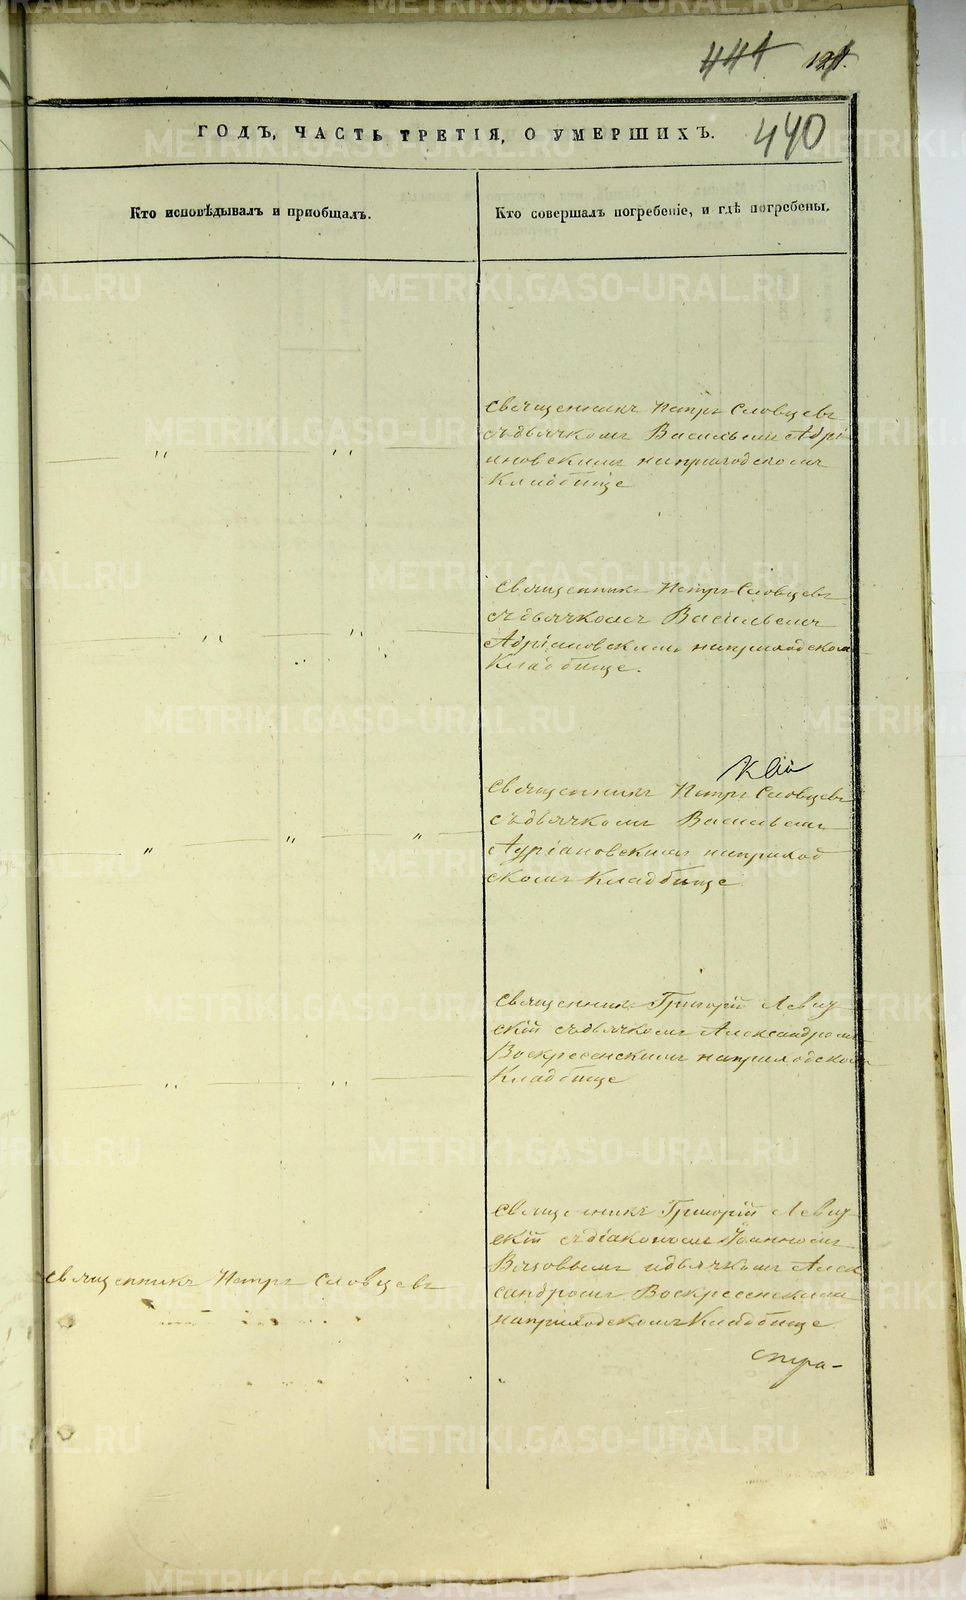 441 121.
ГОДЪ, ЧАСТЬ ТРЕТІЯ, О УМЕРШИХЪ. 440
Кто исповѣдывалъ и пріобщалъ.
Кто совершалъ погребеніе, и гдѣ погребены.
Священникъ Петръ Словцевъ
съ дьячкомъ Васильемъ Адрі
ановскимъ на приходскомъ
Кладбище
Священникъ Петръ Словцевъ
съ дьячкомъ Васильемъ
Адріановскимъ на приходскомъ
Кладбище.
Священникъ Петръ Словцевъ
съ дьячкомъ Васильемъ
Адріановскимъ на приход
скомъ Кладбище.
Священникъ Григорій Левиц
скій съ дьячкомъ Александромъ
Воскресенскимъ на приходскомъ
Кладбище
Священникъ Петръ Словцевъ
Священникъ Григорій Левиц
скій съ діакономъ Іоанномъ
и дьячкомъ Алек
сандромъ Воскресенскимъ
на приходскомъ Кладбище.
METRIKI.GASO-URAL.RU